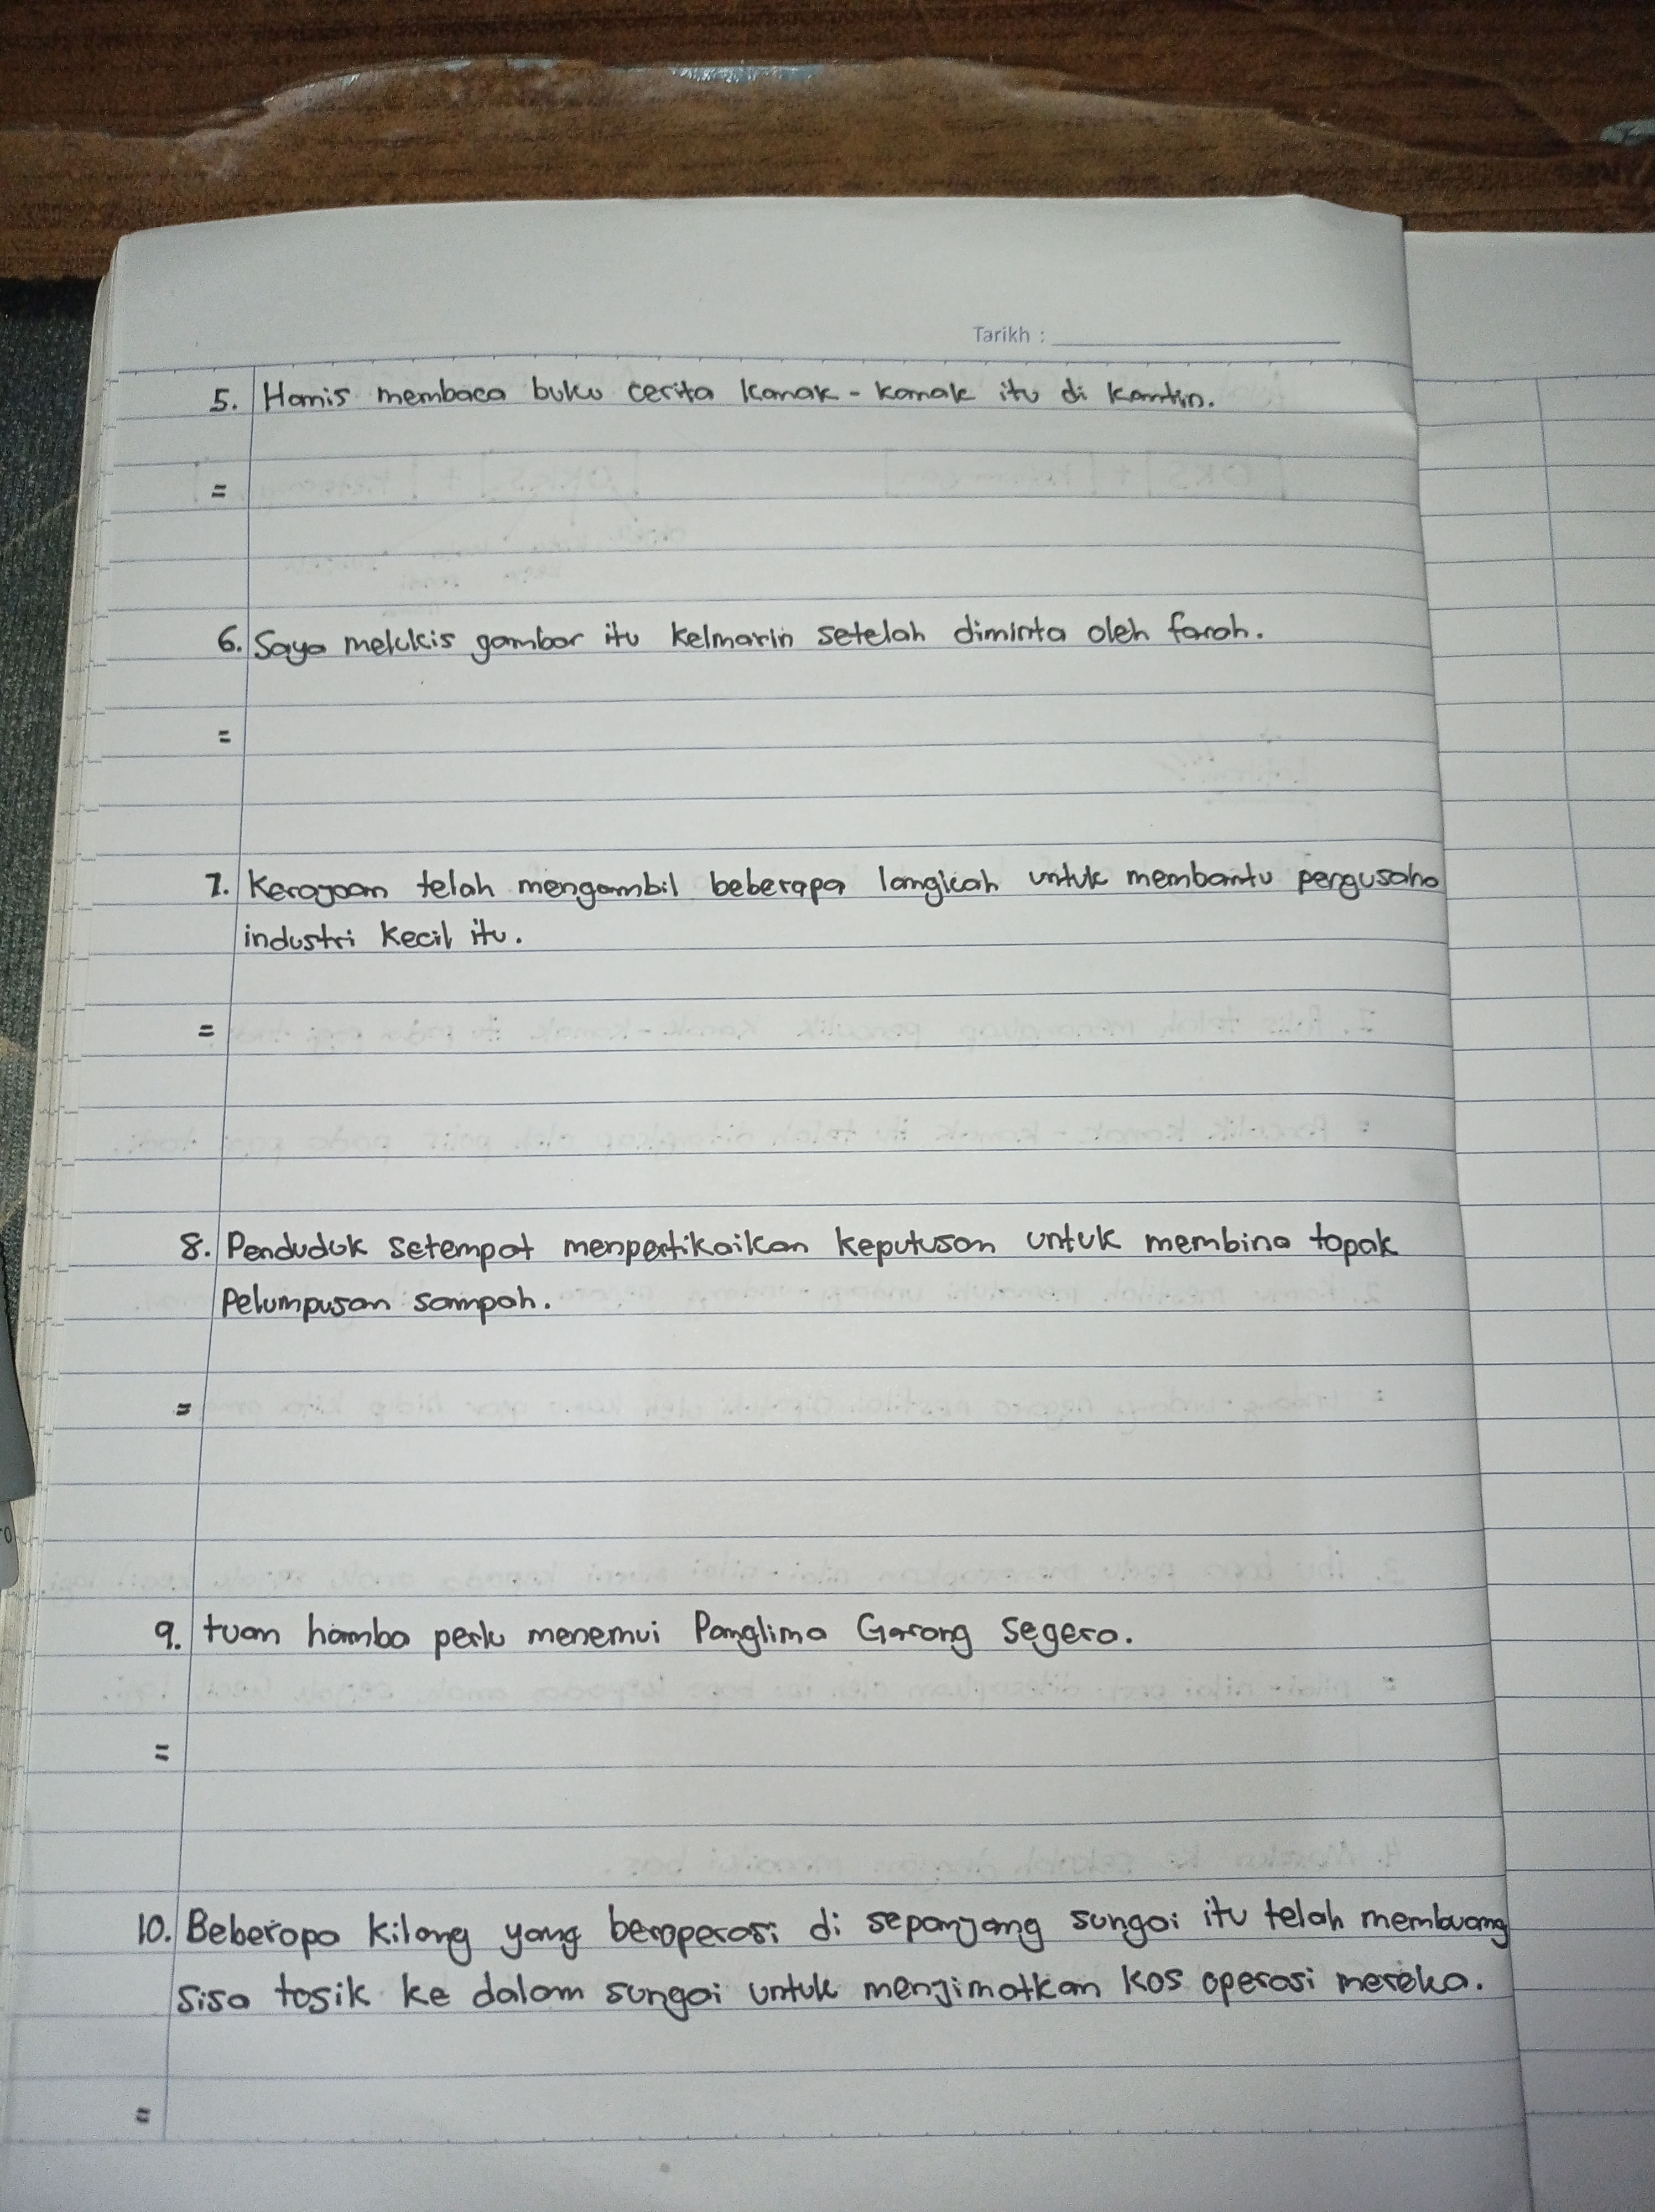 Tarikh :
5. Hanis membaca buku cerita kanak - kanak itu di kantin.
=
6. Saya melukis gambar itu kelmarin setelah diminta oleh farah.
=
7. Kerajaan telah mengambil beberapa langkah untuk membantu pengusaha
industri kecil itu.
=
8. Penduduk setempat mempertikaikan keputusan untuk membina tapak
Pelumpusan sampah.
=
9. tuan hamba perlu menemui Panglima Garang segera.
=
10. Beberapa kilang yang beroperasi di sepanjang sungai itu telah membuang
sisa tosik ke dalam sungai untuk menjimatkan kos operasi mereka.
=